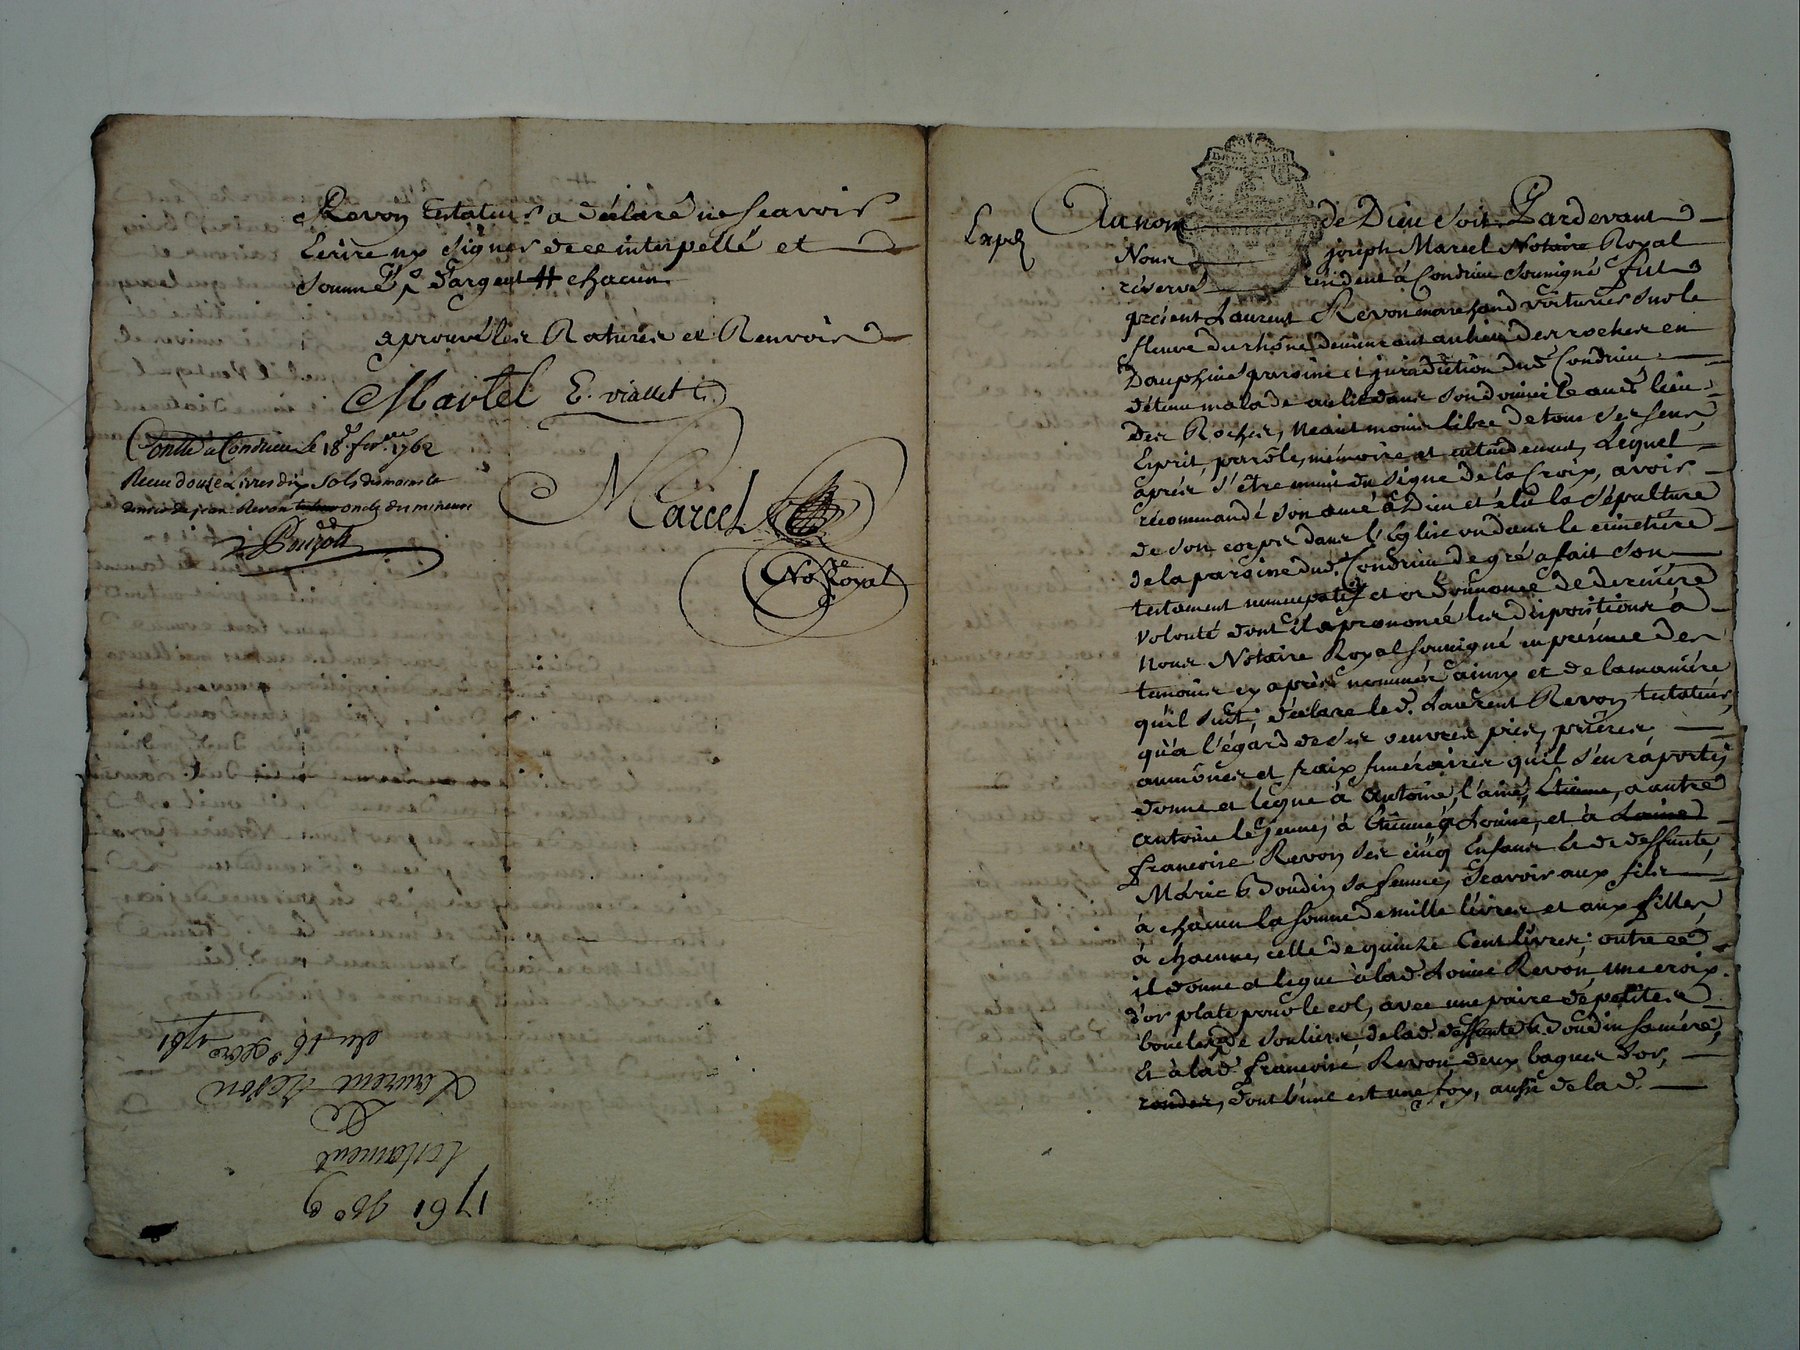 Revon testateur a déclaré ne scavoir
Ecrire ny signer de ce interpellé et
Sommé, d'argent # chacun
aprouvé les Ratures et Renvois
Martel E. viallet
Conllé a Condrieu le 18e fevrier 1762
Receu douze Livres dix Sols
de jean Revon oncle du mineur
Marcel
Nore Royal
1761
testament
De
Laurent Revon
du 16e 1761
Expé
Au nom de Dieu soit Pardevant
Nous joseph Marcel Notaire Royal
réservé résident à Condrieu soussigné fut
présent Laurent Revon marchand voiturier sur le
fleuve du rhône demeurant au lieu des roches en
Dauphiné paroisse et jurisdiction dud. Condrieu
détenu malade au lit dans son domicile aud. lieu
des Roches, neantmoins libre de tous ses sens
Esprit, parôle, mémoire et entendement, Lequel
après s'être muni du signe de la Croix, avoir
récommandé son ame à Dieu et élu la sépulture
de son corps dans l'Eglise ou dans le cimetière
de la paroisse dud. Condrieu de gré a fait son
testament nuncupatif et ordonnance de dernière
volonté dont il a prononcé les dispositions à
nous Notaire Royal soussigné en présence des
temoins cy après nommés ainsy et de la manière
qu'il suit; déclare led. Laurent Revon testateur,
qu'à l'égard de ses oeuvres pies, prières,
aumônes et fraix funéraires qu'il s'en raporte;
donne et legue à Antoine l'ainé, Etienne, a autre
antoine le jeune, à Etienne, à Louise, et à Louise
françoise Revon ses cinq Enfans et de deffunte
Marie Boudin sa femme, Scavoir aux fils
à chacun la somme de mille livres et aux filles
à chacune, celle de quinze Cent livres; outre ce
il donne et legue à lad. Louise Revon une croix
d'or plate pour le col, avec une paire de petites
boucles de souliers de lad. deffunte Boudin sa mère,
Et à lad. françoise Revon deux bagues d'or,
rondes, dont l'une est une foy, aussi de lad.